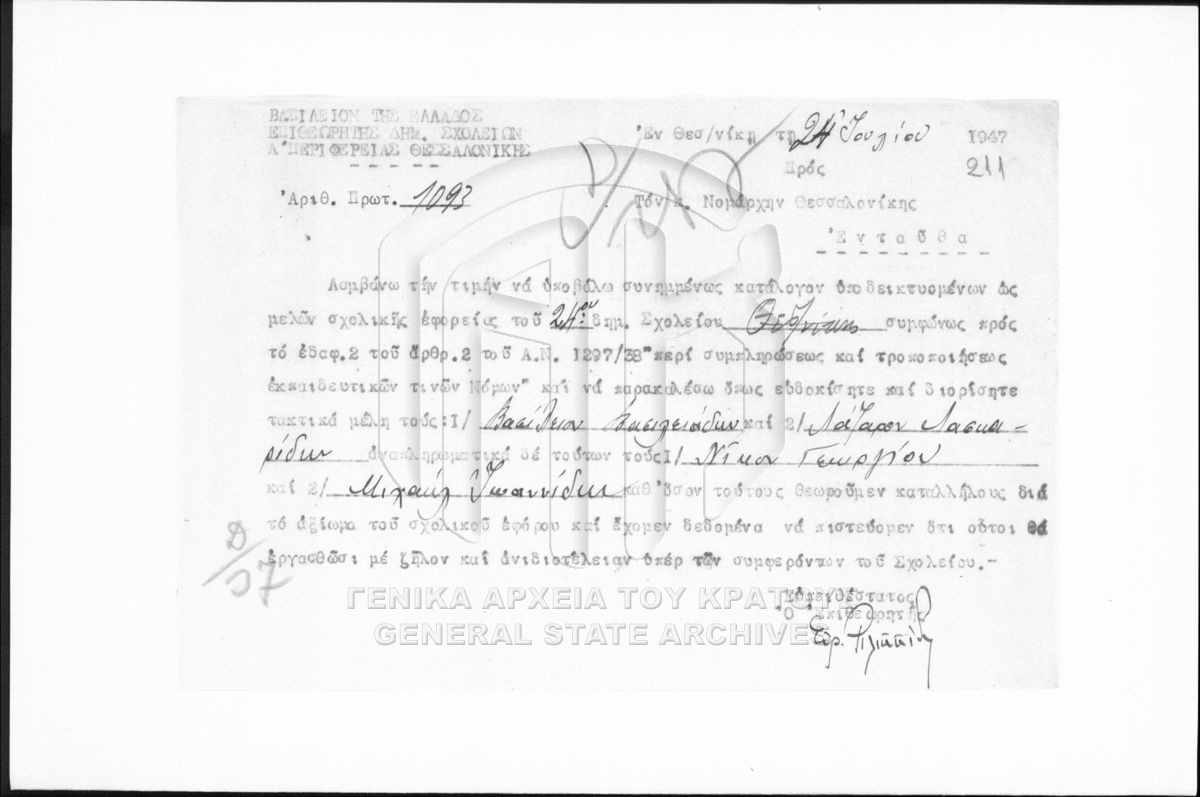 ΒΑΣΙΛΕΙΟΝ ΤΗΣ ΕΛΛΑΔΟΣ
ΕΠΙΘΕΩΡΗΤΗΣ ΔΗΜ. ΣΧΟΛΕΙΩΝ
Α΄ΠΕΡΙΦΕΡΕΙΑΣ ΘΕΣΣΑΛΟΝΙΚΗΣ
Ἐν Θεσ/νίκῃ τῇ 24 Ἰουλίου 1947
211
Πρός
Ἀριθ. Πρωτ. 1093
Τόν κ. Νομάρχην Θεσσαλονίκης
Ἐνταῦθα
Λαμβάνω τήν τιμήν νά ὑποβάλω συνημμένως κατάλογον ὑποδεικτυομένων ὡς
μελῶν σχολικῆς ἐφορείας τοῦ 24ου δημ. Σχολείου Θεσ/νίκης συμφώνως πρός
τό ἐδαφ.2 τοῦ ἄρθρ.2 τοῦ Α.Ν. 1297/38"περί συμπληρώσεως καί τροποποιήσεως
ἐκπαιδευτικῶν τινῶν Νόμων" καί νά παρακαλέσω ὅπως εὐδοκίσητε καί διορίσητε
τακτικά μέλη τούς:1/ Βασίλειον Βασιλειάδην καί 2/ Λάζαρον Λασκα-
ρίδην ἀναπληρωματικά δέ τούτων τούς1/ Νῖκον Γεωργίου
καί 2/ Μιχαήλ Ἰωαννίδην καθ'ὅσον τούτους θεωροῦμεν καταλλήλους διά
τό ἀξίωμα τοῦ σχολικοῦ ἐφόρου καί ἔχομεν δεδομένα νά πιστεύομεν ὅτι οὗτοι θά
ἐργασθῶσι μέ ζῆλον καί ἀνιδιοτέλειαν ὑπέρ τῶν συμφερόντων τοῦ Σχολείου.-
Εὐπειθέστατος
Ὁ Ἐπιθεωρητής
ΓΕΝΙΚΑ ΑΡΧΕΙΑ ΤΟΥ ΚΡΑΤΟΥΣ
GENERAL STATE ARCHIVES